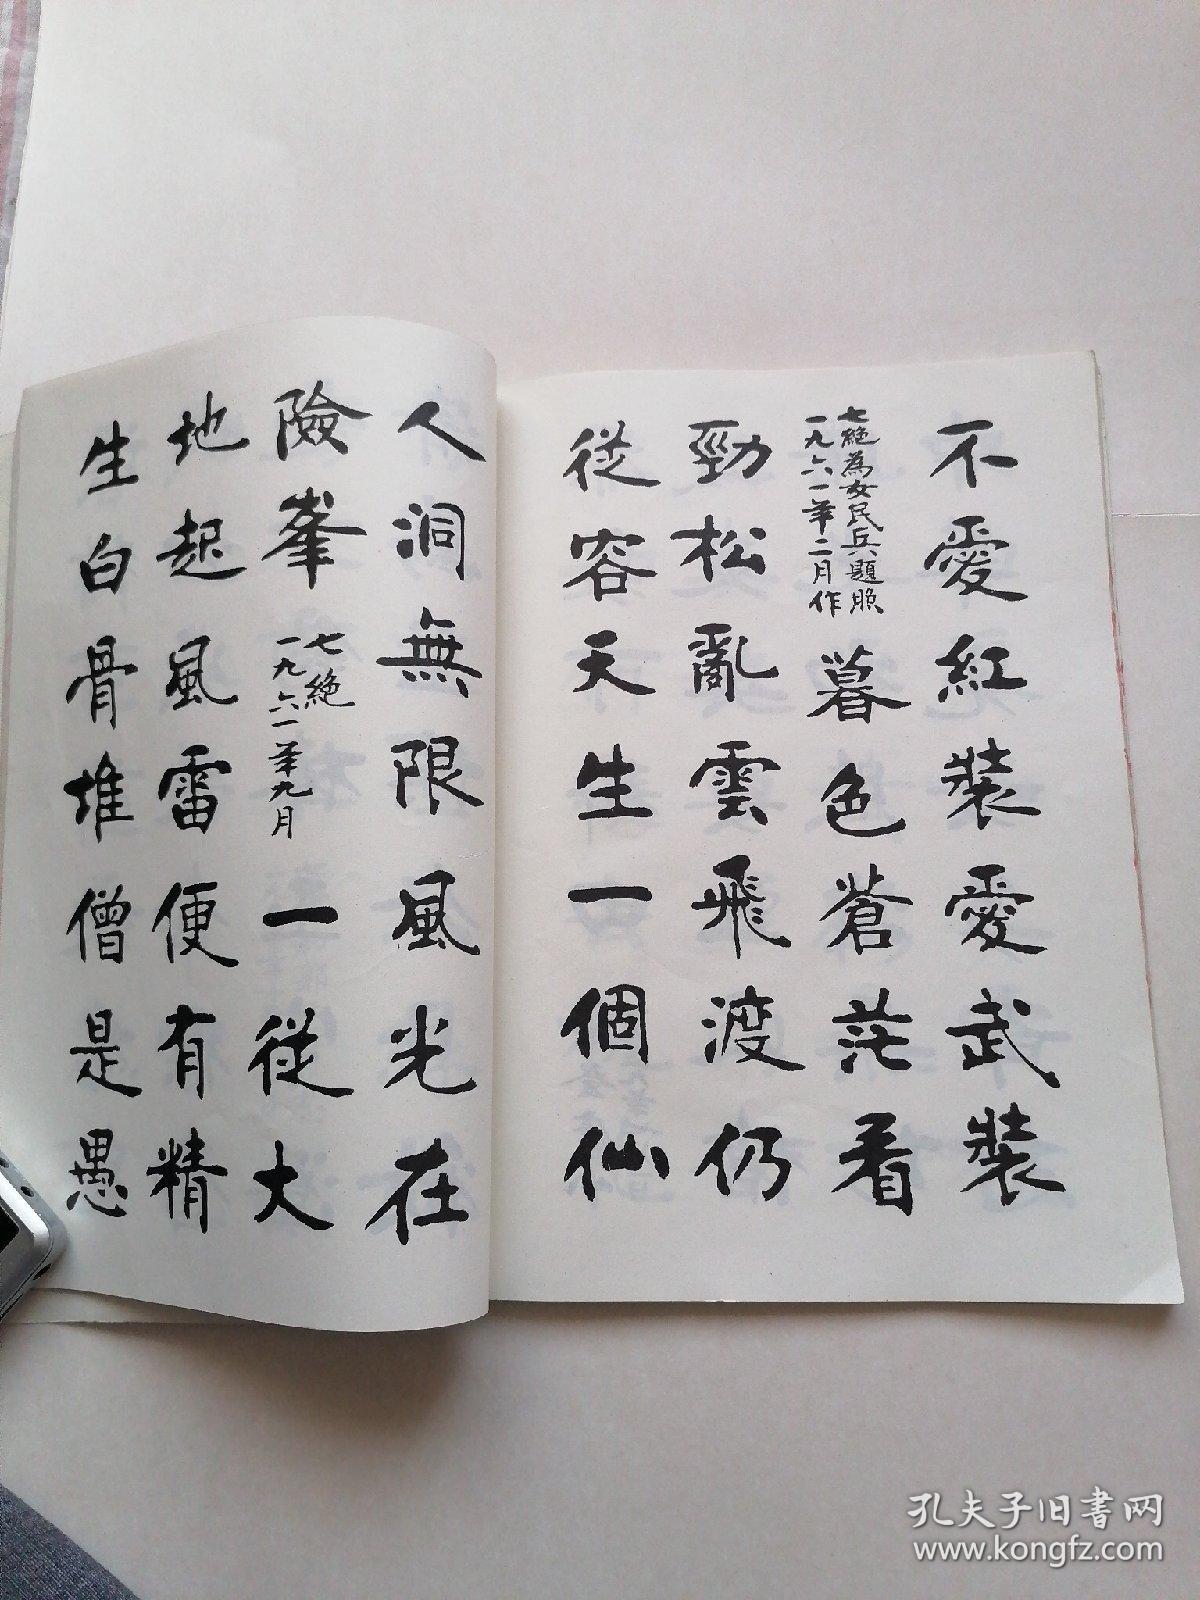 不愛紅裝愛武裝
七絕為女民兵題照
一九六一年二月作
暮色蒼茫看
勁松亂雲飛渡仍
從容天生一個仙
人洞無限風光在
險峯
七絕
一九六一年九月
一從大
地起風雷便有精
生白骨堆僧是愚
孔夫子旧书网
www.kongfz.com